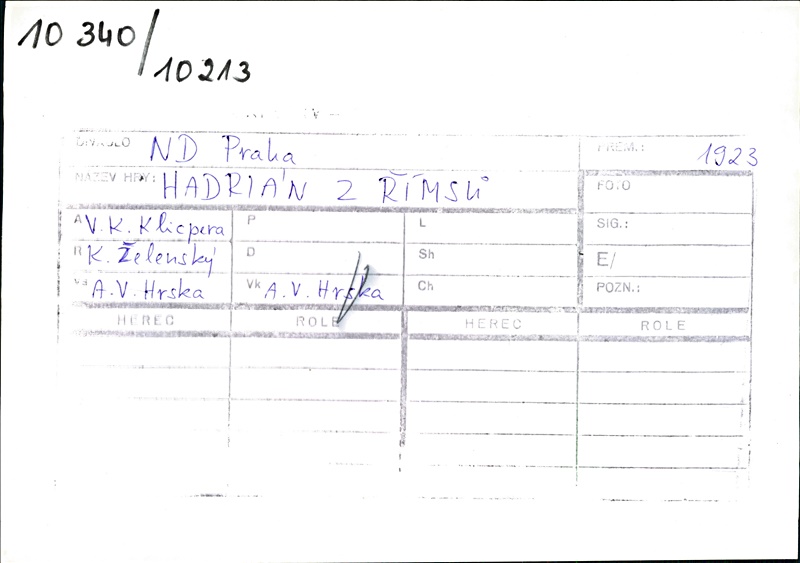 10 340/
10213
DIVADLO ND Praha PREM.: 1923
NÁZEV HRY: HADRIÁN Z ŘÍMSŮ FOTO
A V. K. Klicpera P L SIG.:
R K. Želenský D Sh E/
A. V. Hrska Vk A. V. Hrska Ch POZN.:
HEREC ROLE HEREC ROLE